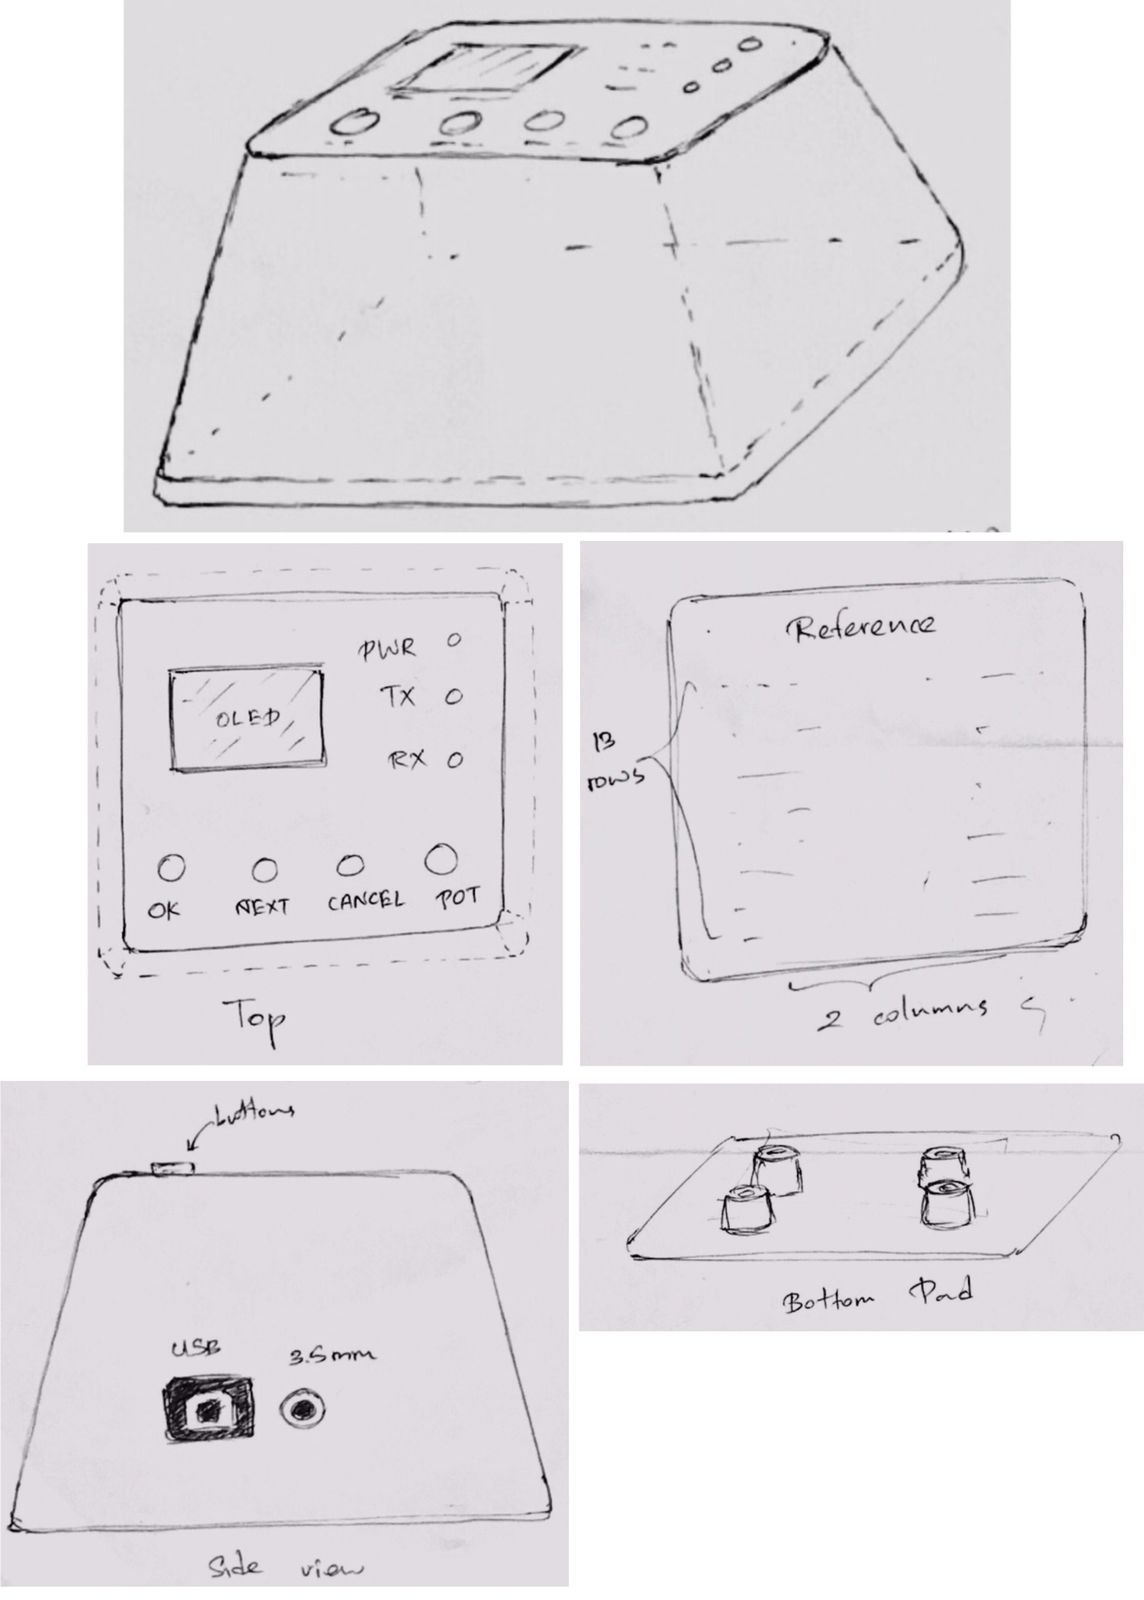 PWR
TX
OLED
RX
OK NEXT CANCEL POT
Top
Reference
13
rows
2 columns
buttons
USB 3.5mm
Side view
Bottom Pad